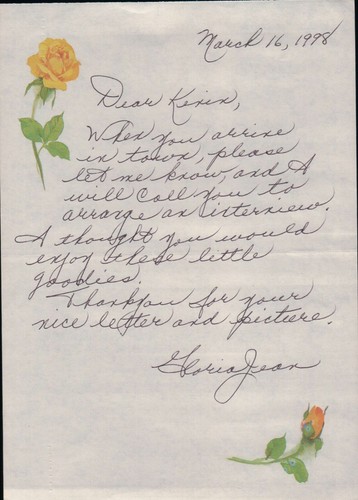 March 16, 1998
Dear Kevin,
When you arrive
in town, please
let me know, and I
will call you to
arrange an interview.
I thought you would
enjoy these little
goodies.
Thank you for your
nice letter and picture.
Gloria Jean